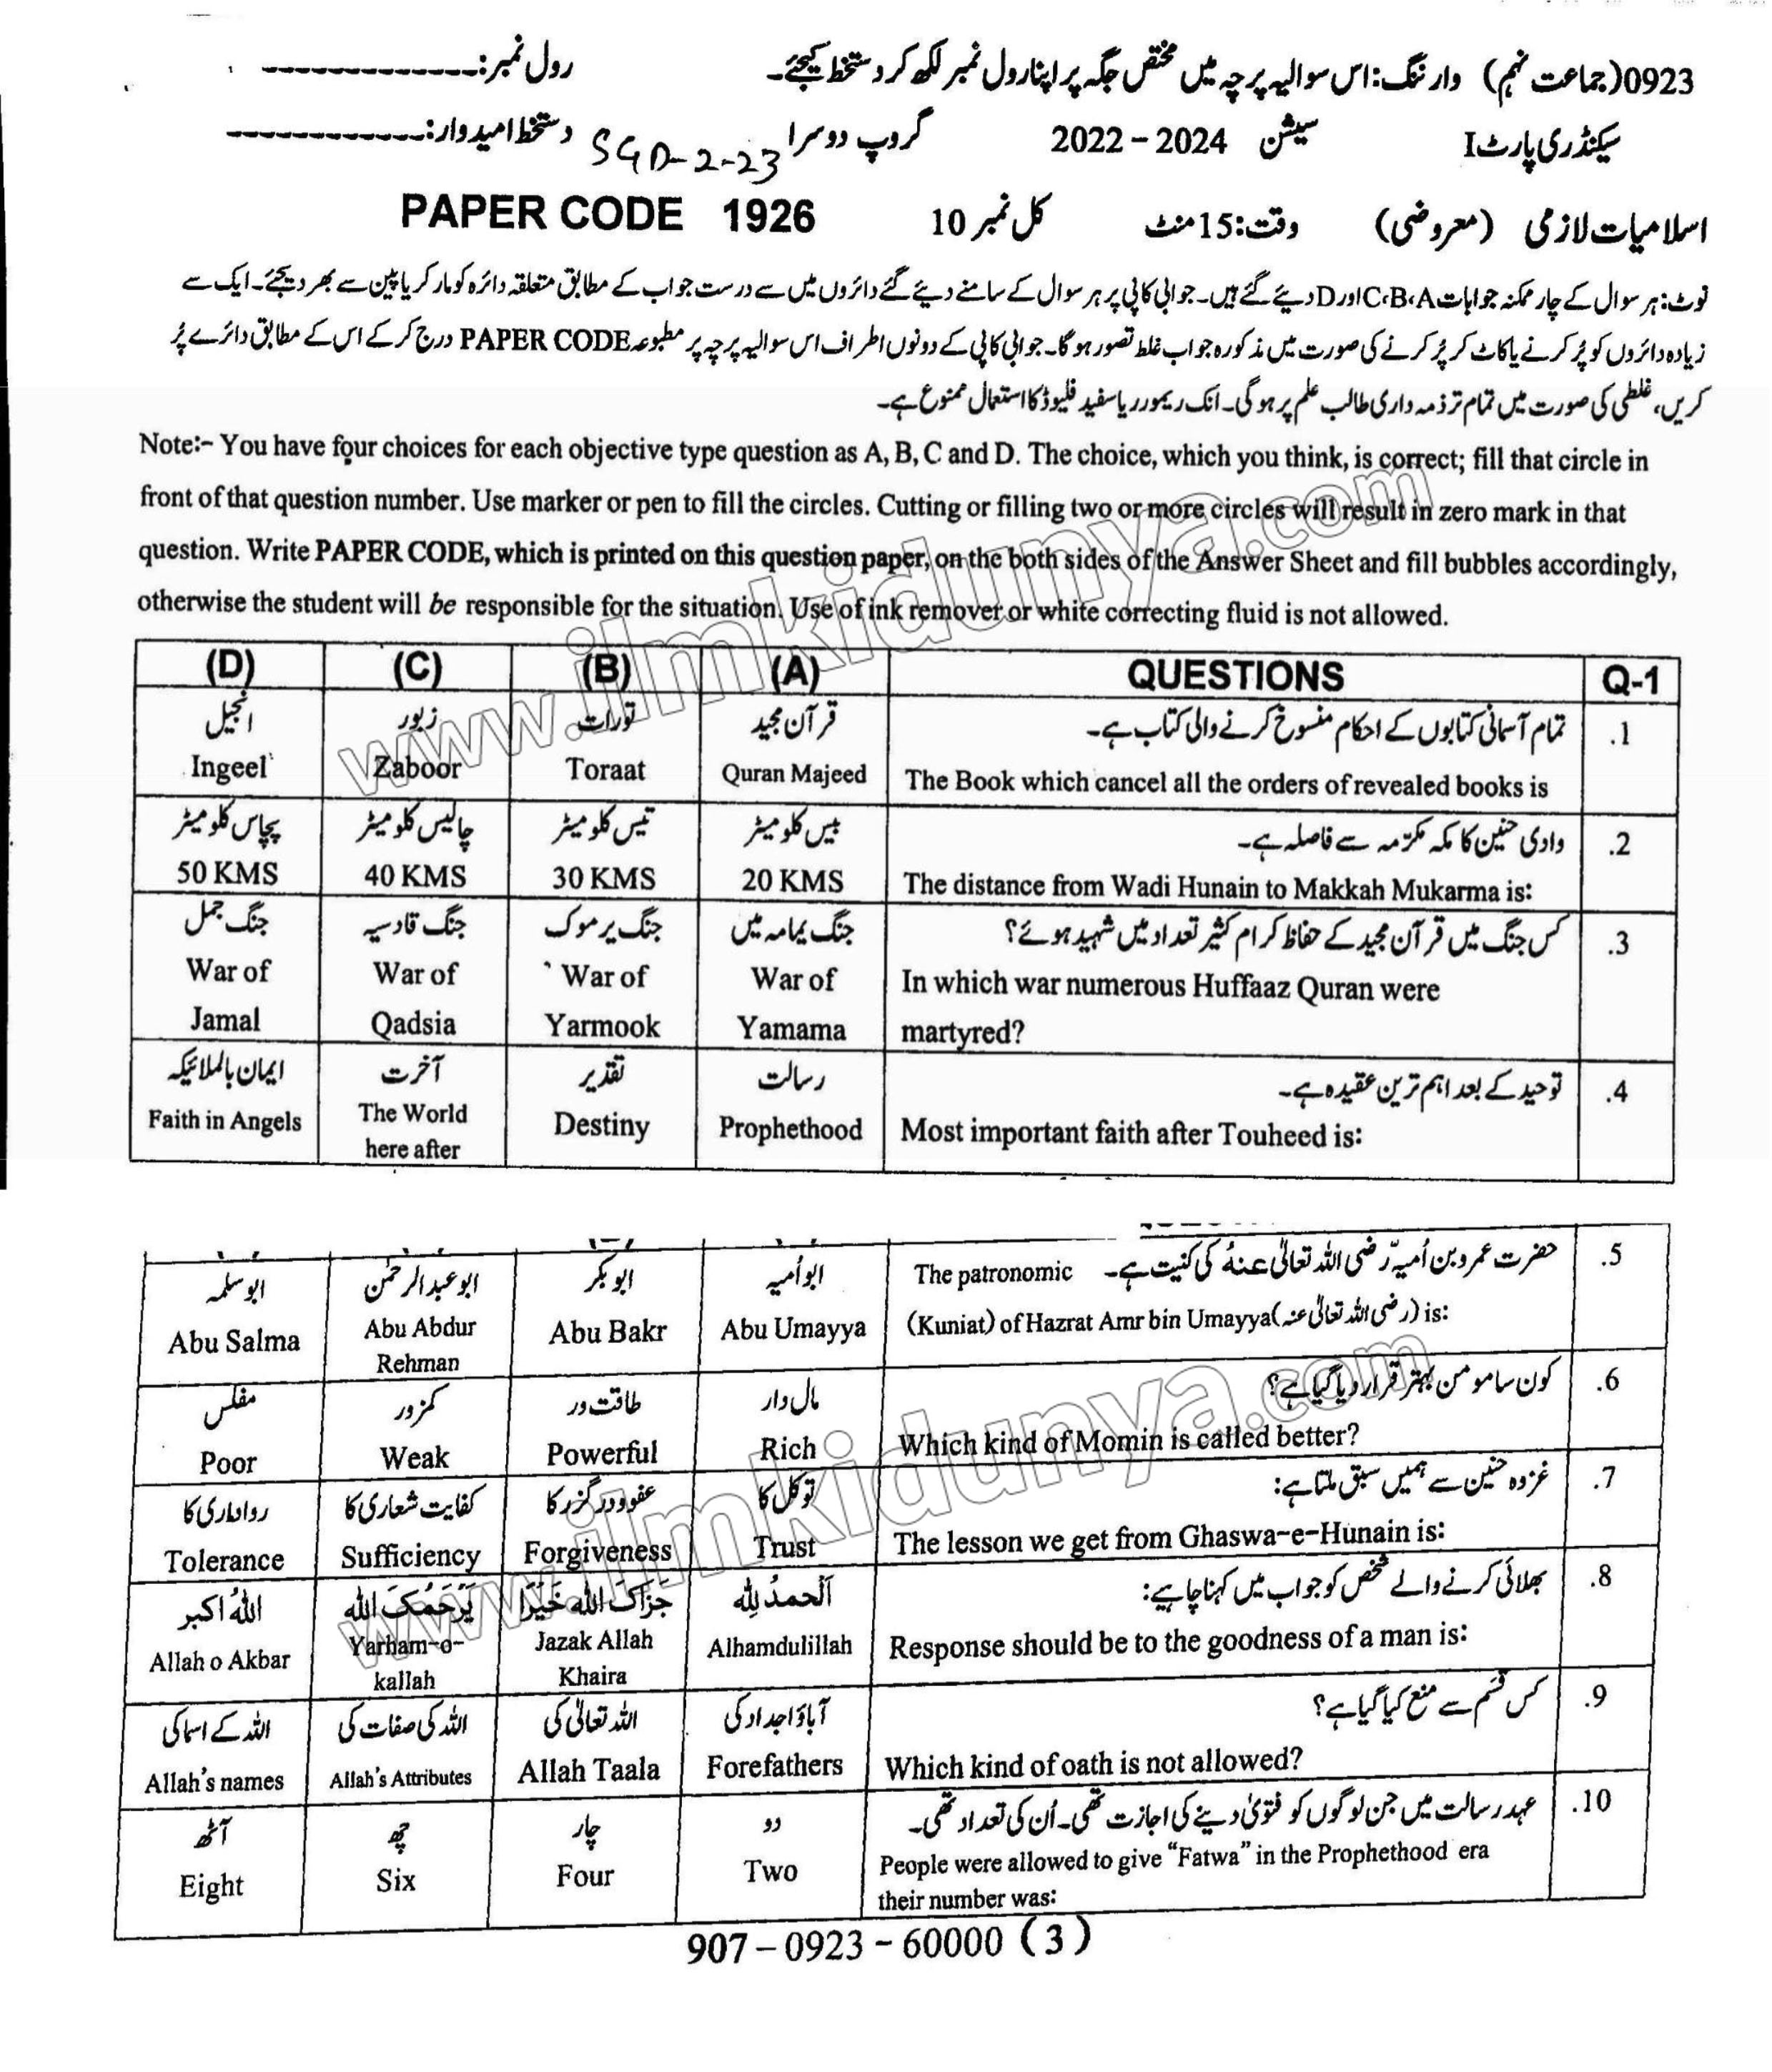 0923(جماعت نہم) وارننگ: اس سوالیہ پرچہ میں مختص جگہ پر اپنا رول نمبر لکھ کر دستخط کیجئے۔ رول نمبر: -------------
سیکنڈری پارٹ I سیشن 2022 – 2024 گروپ دوسرا SGD-2-23 دستخط امیدوار: ------------
اسلامیات لازمی (معروضی) وقت: 15 منٹ کل نمبر 10 PAPER CODE 1926
نوٹ: ہر سوال کے چار ممکنہ جوابات A، B، C اور D دیئے گئے ہیں۔ جوابی کاپی پر ہر سوال کے سامنے دیئے گئے دائروں میں سے درست جواب کے مطابق متعلقہ دائرہ کو مارکر یا پین سے بھر دیجئے۔ ایک سے
زیادہ دائروں کو پُر کرنے یا کاٹ کر پُر کرنے کی صورت میں مذکورہ جواب غلط تصور ہوگا۔ جوابی کاپی کے دونوں اطراف اس سوالیہ پرچہ پر مطبوعہ PAPER CODE درج کر کے اس کے مطابق دائرے پُر
کریں، غلطی کی صورت میں تمام تر ذمہ داری طالب علم پر ہوگی۔ انک ریموور یا سفید فلیوڈ کا استعمال ممنوع ہے۔
Note:- You have four choices for each objective type question as A, B, C and D. The choice, which you think, is correct; fill that circle in
front of that question number. Use marker or pen to fill the circles. Cutting or filling two or more circles will result in zero mark in that
question. Write PAPER CODE, which is printed on this question paper, on the both sides of the Answer Sheet and fill bubbles accordingly,
otherwise the student will be responsible for the situation. Use of ink remover or white correcting fluid is not allowed.
www.ilmkidunya.com
(D) (C) (B) (A) QUESTIONS Q-1
انجیل زبور تورات قرآن مجید تمام آسمانی کتابوں کے احکام منسوخ کرنے والی کتاب ہے۔ .1
Ingeel Zaboor Toraat Quran Majeed The Book which cancel all the orders of revealed books is
پچاس کلو میٹر چالیس کلو میٹر تیس کلو میٹر بیس کلو میٹر وادی حنین کا مکہ مکرّمہ سے فاصلہ ہے۔ .2
50 KMS 40 KMS 30 KMS 20 KMS The distance from Wadi Hunain to Makkah Mukarma is:
جنگ جمل جنگ قادسیہ جنگ یرموک جنگ یمامہ میں کس جنگ میں قرآن مجید کے حفاظ کرام کثیر تعداد میں شہید ہوئے؟ .3
War of War of War of War of In which war numerous Huffaaz Quran were
Jamal Qadsia Yarmook Yamama martyred?
ایمان بالملائیکہ آخرت تقدیر رسالت توحید کے بعد اہم ترین عقیدہ ہے۔ .4
Faith in Angels The World here after Destiny Prophethood Most important faith after Touheed is:
ابو سلمہ ابو عبدالرحمٰن ابو بکر ابو اُمیہ The patronomic حضرت عمرو بن اُمیہّ رضی اللہ تعالیٰ عنہُ کی کنیت ہے۔ .5
Abu Salma Abu Abdur Rehman Abu Bakr Abu Umayya (Kuniat) of Hazrat Amr bin Umayya(رضی اللہ تعالیٰ عنہ) is:
مفلس کمزور طاقت ور مال دار کون سا مومن بہتر قرار دیا گیا ہے؟ .6
Poor Weak Powerful Rich Which kind of Momin is called better?
رواداری کا کفایت شعاری کا عفو و درگزر کا توکل کا غزوہ حنین سے ہمیں سبق ملتا ہے: .7
Tolerance Sufficiency Forgiveness Trust The lesson we get from Ghaswa-e-Hunain is:
اللہُ اکبر یَرْحَمُکَ اللہ جَزَاکَ اللہ خَیْرًا اَلحمدُ لِلہ بھلائی کرنے والے شخص کو جواب میں کہنا چاہیے: .8
Allah o Akbar Yarham-o-kallah Jazak Allah Khaira Alhamdulillah Response should be to the goodness of a man is:
اللہ کے اسما کی اللہ کی صفات کی اللہ تعالیٰ کی آباؤ اجداد کی کس قسم سے منع کیا گیا ہے؟ .9
Allah's names Allah's Attributes Allah Taala Forefathers Which kind of oath is not allowed?
آٹھ چھ چار دو عہد رسالت میں جن لوگوں کو فتویٰ دینے کی اجازت تھی۔ اُن کی تعداد تھی۔ .10
Eight Six Four Two People were allowed to give “Fatwa” in the Prophethood era
their number was:
www.ilmkidunya.com
907 – 0923 – 60000 (3)